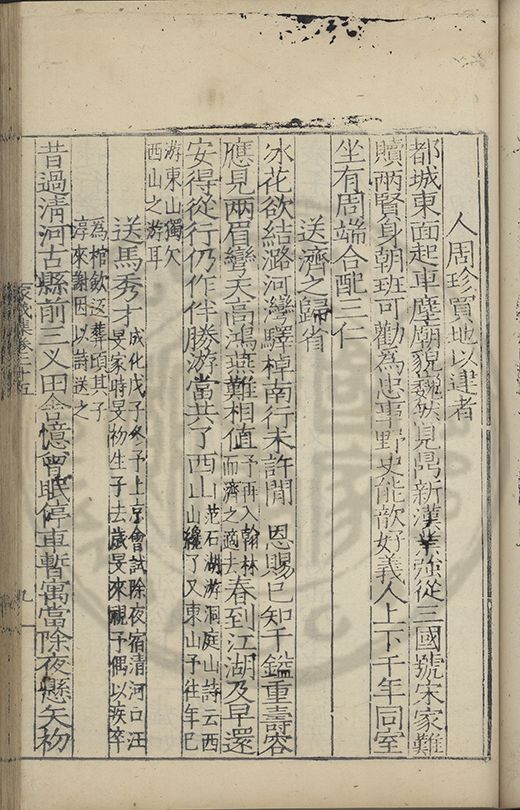 人周珍買地以建者
都城東面起車塵廟貌魏然見舄新漢業強從三國號宋家難
贖兩賢身朝班可勸為忠事野史能歆好義人上下千年同室
坐有周端合配三仁
送濟之歸省
冰花欲結潞河灣驛棹南行未許閒 恩賜已知千鎰重壽容
應見兩眉彎天高鴻燕難相值予再入翰林而濟之適去春到江湖及早還
安得從行仍作伴勝游當共了西山范石湖游洞庭山詩云西山纔了又東山予往年已
游東山獨欠西山之游耳
送馬秀才成化戊子冬予上京會試除夜宿清河口汪旻家時旻初生子去歲旻來視予偶以疾卒
為棺斂返葬頃其子淳來謝因以詩送之
昔過清河古縣前三义田舍憶曾眠停車暫寓當除夜懸矢初
家藏集卷二十五
九